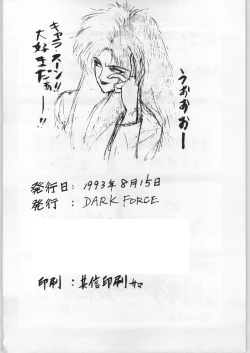 キャラ
スーン!!
大好き
だぁー
ー!!
うおおおー
発行日: 1993年8月15日
発行: DARK FORCE
印刷: 共信印刷サマ